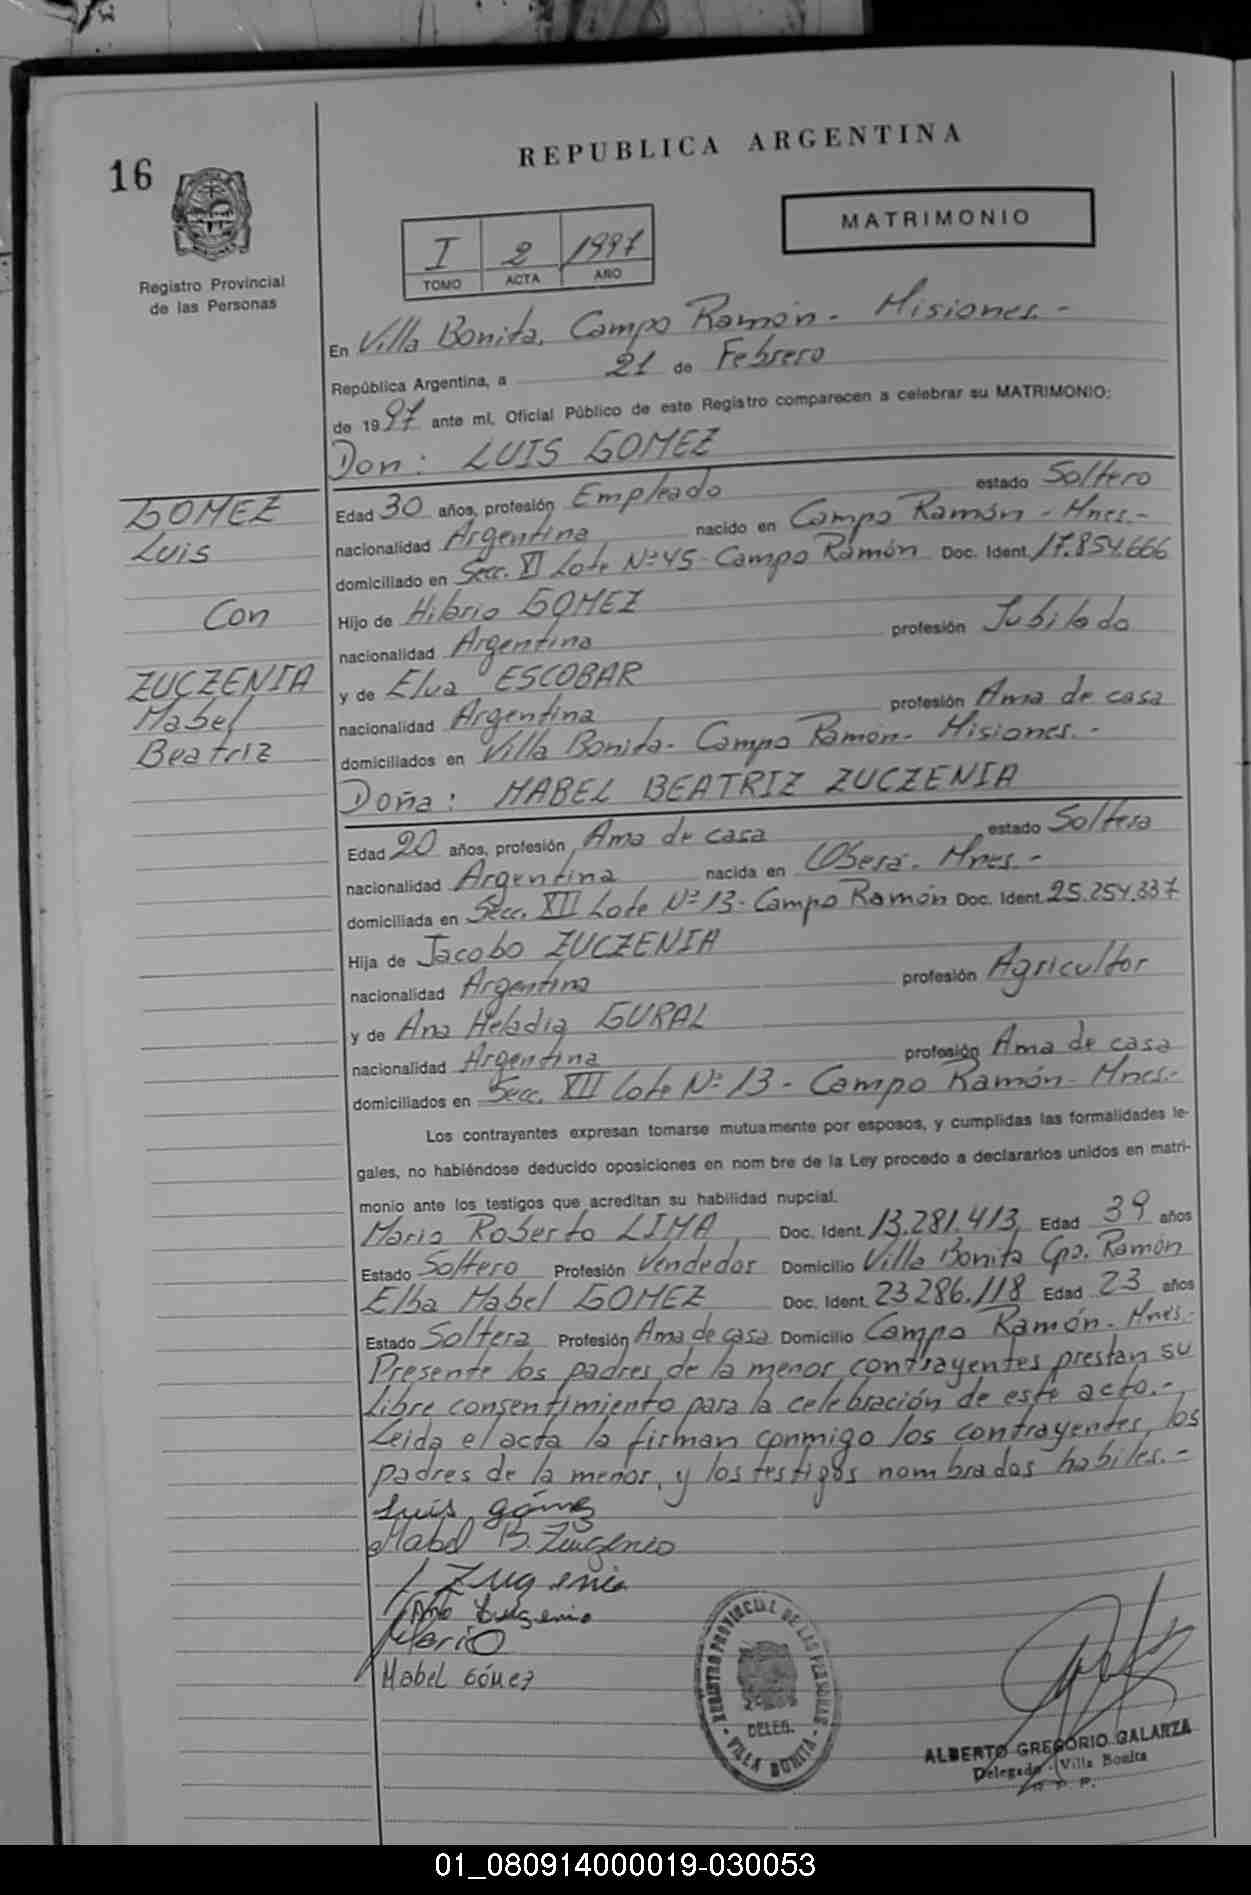 REPUBLICA ARGENTINA
16
MATRIMONIO
I 2 1997
TOMO ACTA AÑO
Registro Provincial
de las Personas
En Villa Bonita, Campo Ramón - Misiones.-
República Argentina, a 21 de Febrero
de 1997 ante mí, Oficial Público de este Registro comparecen a celebrar su MATRIMONIO:
Don: LUIS GOMEZ
GOMEZ
Luis
Con
ZUCZENIA
Mabel
Beatriz
Edad 30 años, profesión Empleado estado Soltero
nacionalidad Argentina nacido en Campo Ramón - Mnes.-
domiciliado en Secc. VI Lote Nº 45 - Campo Ramón Doc. Ident. 17.854.666
Hijo de Hilario GOMEZ
nacionalidad Argentina profesión Jubilado
y de Elva ESCOBAR
nacionalidad Argentina profesión Ama de casa
domiciliados en Villa Bonita - Campo Ramón - Misiones.-
Doña: MABEL BEATRIZ ZUCZENIA
Edad 20 años, profesión Ama de casa estado Soltera
nacionalidad Argentina nacida en Oberá - Mnes.-
domiciliada en Secc. XII Lote Nº 13 - Campo Ramón Doc. Ident. 25.254.337
Hija de Jacobo ZUCZENIA
nacionalidad Argentina profesión Agricultor
y de Ana Heladia GURAL
nacionalidad Argentina profesión Ama de casa
domiciliados en Secc. XII Lote Nº 13 - Campo Ramón - Mnes.-
Los contrayentes expresan tomarse mutuamente por esposos, y cumplidas las formalidades le-
gales, no habiéndose deducido oposiciones en nom bre de la Ley procedo a declararlos unidos en matri-
monio ante los testigos que acreditan su habilidad nupcial.
Mario Roberto LIMA Doc. Ident. 13.281.413 Edad 39 años
Estado Soltero Profesión Vendedor Domicilio Villa Bonita Cpo. Ramón
Elba Mabel GOMEZ Doc. Ident. 23.286.118 Edad 23 años
Estado Soltera Profesión Ama de casa Domicilio Campo Ramón - Mnes.-
Presente los padres de la menor contrayentes prestan su
libre consentimiento para la celebración de este acto.-
Leida el acta la firman conmigo los contrayentes, los
padres de la menor, y los testigos nombrados habiles.-
Luis gómez
Mabel B. Zugenio
Zugenia
Ana Zugenio
Mario
Mabel Gómez
REGISTRO PROVINCIAL DE LAS PERSONAS
DELEG.
VILLA BONITA
ALBERTO GREGORIO GALARZA
Delegado - Villa Bonita
R. P. P.
01_080914000019-030053